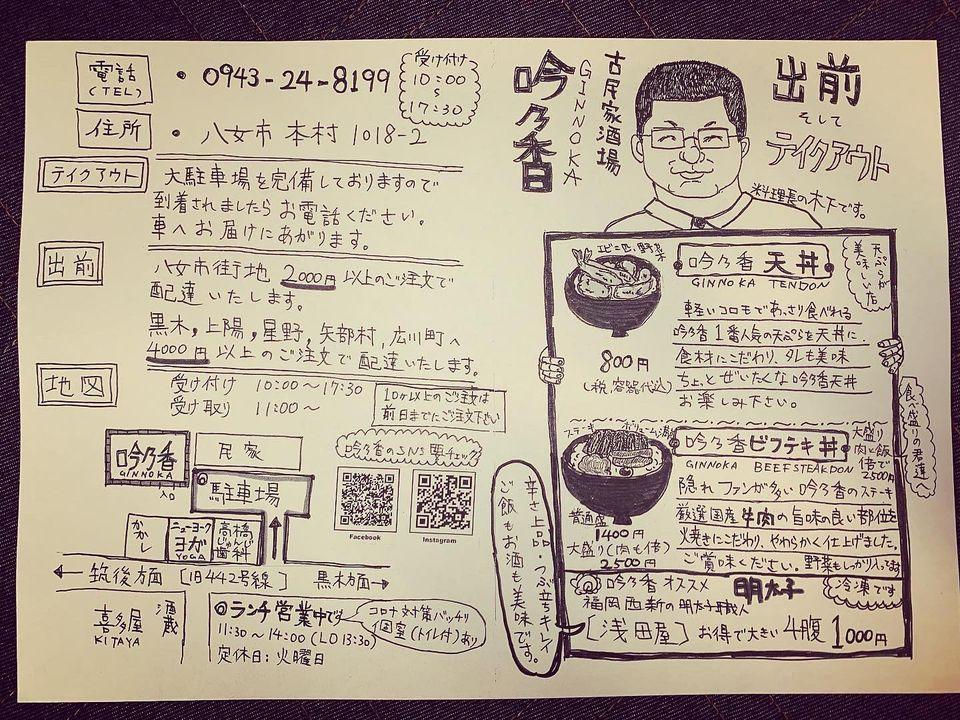 出前
そして
テイクアウト
古民家酒場
GINNOKA
吟乃香
料理長の木下です。
エビ二匹、野菜
吟乃香 天丼
GINNOKA TENDON
天ぷらが
美味しい店
軽いコロモであっさり食べれる
吟乃香1番人気の天ぷらを天丼に.
食材にこだわり、タレも美味
ちょっとぜいたくな吟乃香天丼
お楽しみ下さい。
800円
(税、容器代込)
食べ盛りの君達へ
吟乃香ビフテキ丼
GINNOKA BEEFSTEAKDON
大盛り
肉と飯
倍で
2500円
隠れファンが多い吟乃香のステーキ
厳選国産牛肉の旨味の良い部位を
焼きにこだわり、やわらかく仕上げました。
ご賞味ください。野菜もしっかり入ってます
普通盛
1400円
大盛り(肉も倍)
2500円
吟乃香オススメ 明太子
冷凍です
福岡西新の明太子職人
[浅田屋] お得で大きい 4腹 1000円
辛さ上品、つぶ立ちキレイ
ご飯もお酒も美味です。
電話
(TEL)
・0943-24-8199
受け付け
10:00
~
17:30
住所
・八女市 本村 1018-2
テイクアウト
大駐車場を完備しておりますので
到着されましたらお電話ください。
車へお届けにあがります。
出前
八女市街地 2000円以上のご注文で
配達いたします。
黒木,上陽,星野,矢部村,広川町へ
4000円以上のご注文で配達いたします。
受け付け 10:00~17:30
受け取り 11:00~
10ヶ以上のご注文は
前日までにご注文下さい
地図
吟乃香
GINNOKA
入口
民家
駐車場
かかし
ニューヨーク
ヨガ
YOGA
高橋
じゅんじ
歯科
← 筑後方面 [旧442号線] 黒木方面→
喜多屋
KITAYA
酒蔵
吟乃香のSNS要チェック
Facebook
Instagram
◎ランチ営業中です
11:30~14:00(LO 13:30)
定休日:火曜日
コロナ対策バッチリ
個室(トイレ付)あり